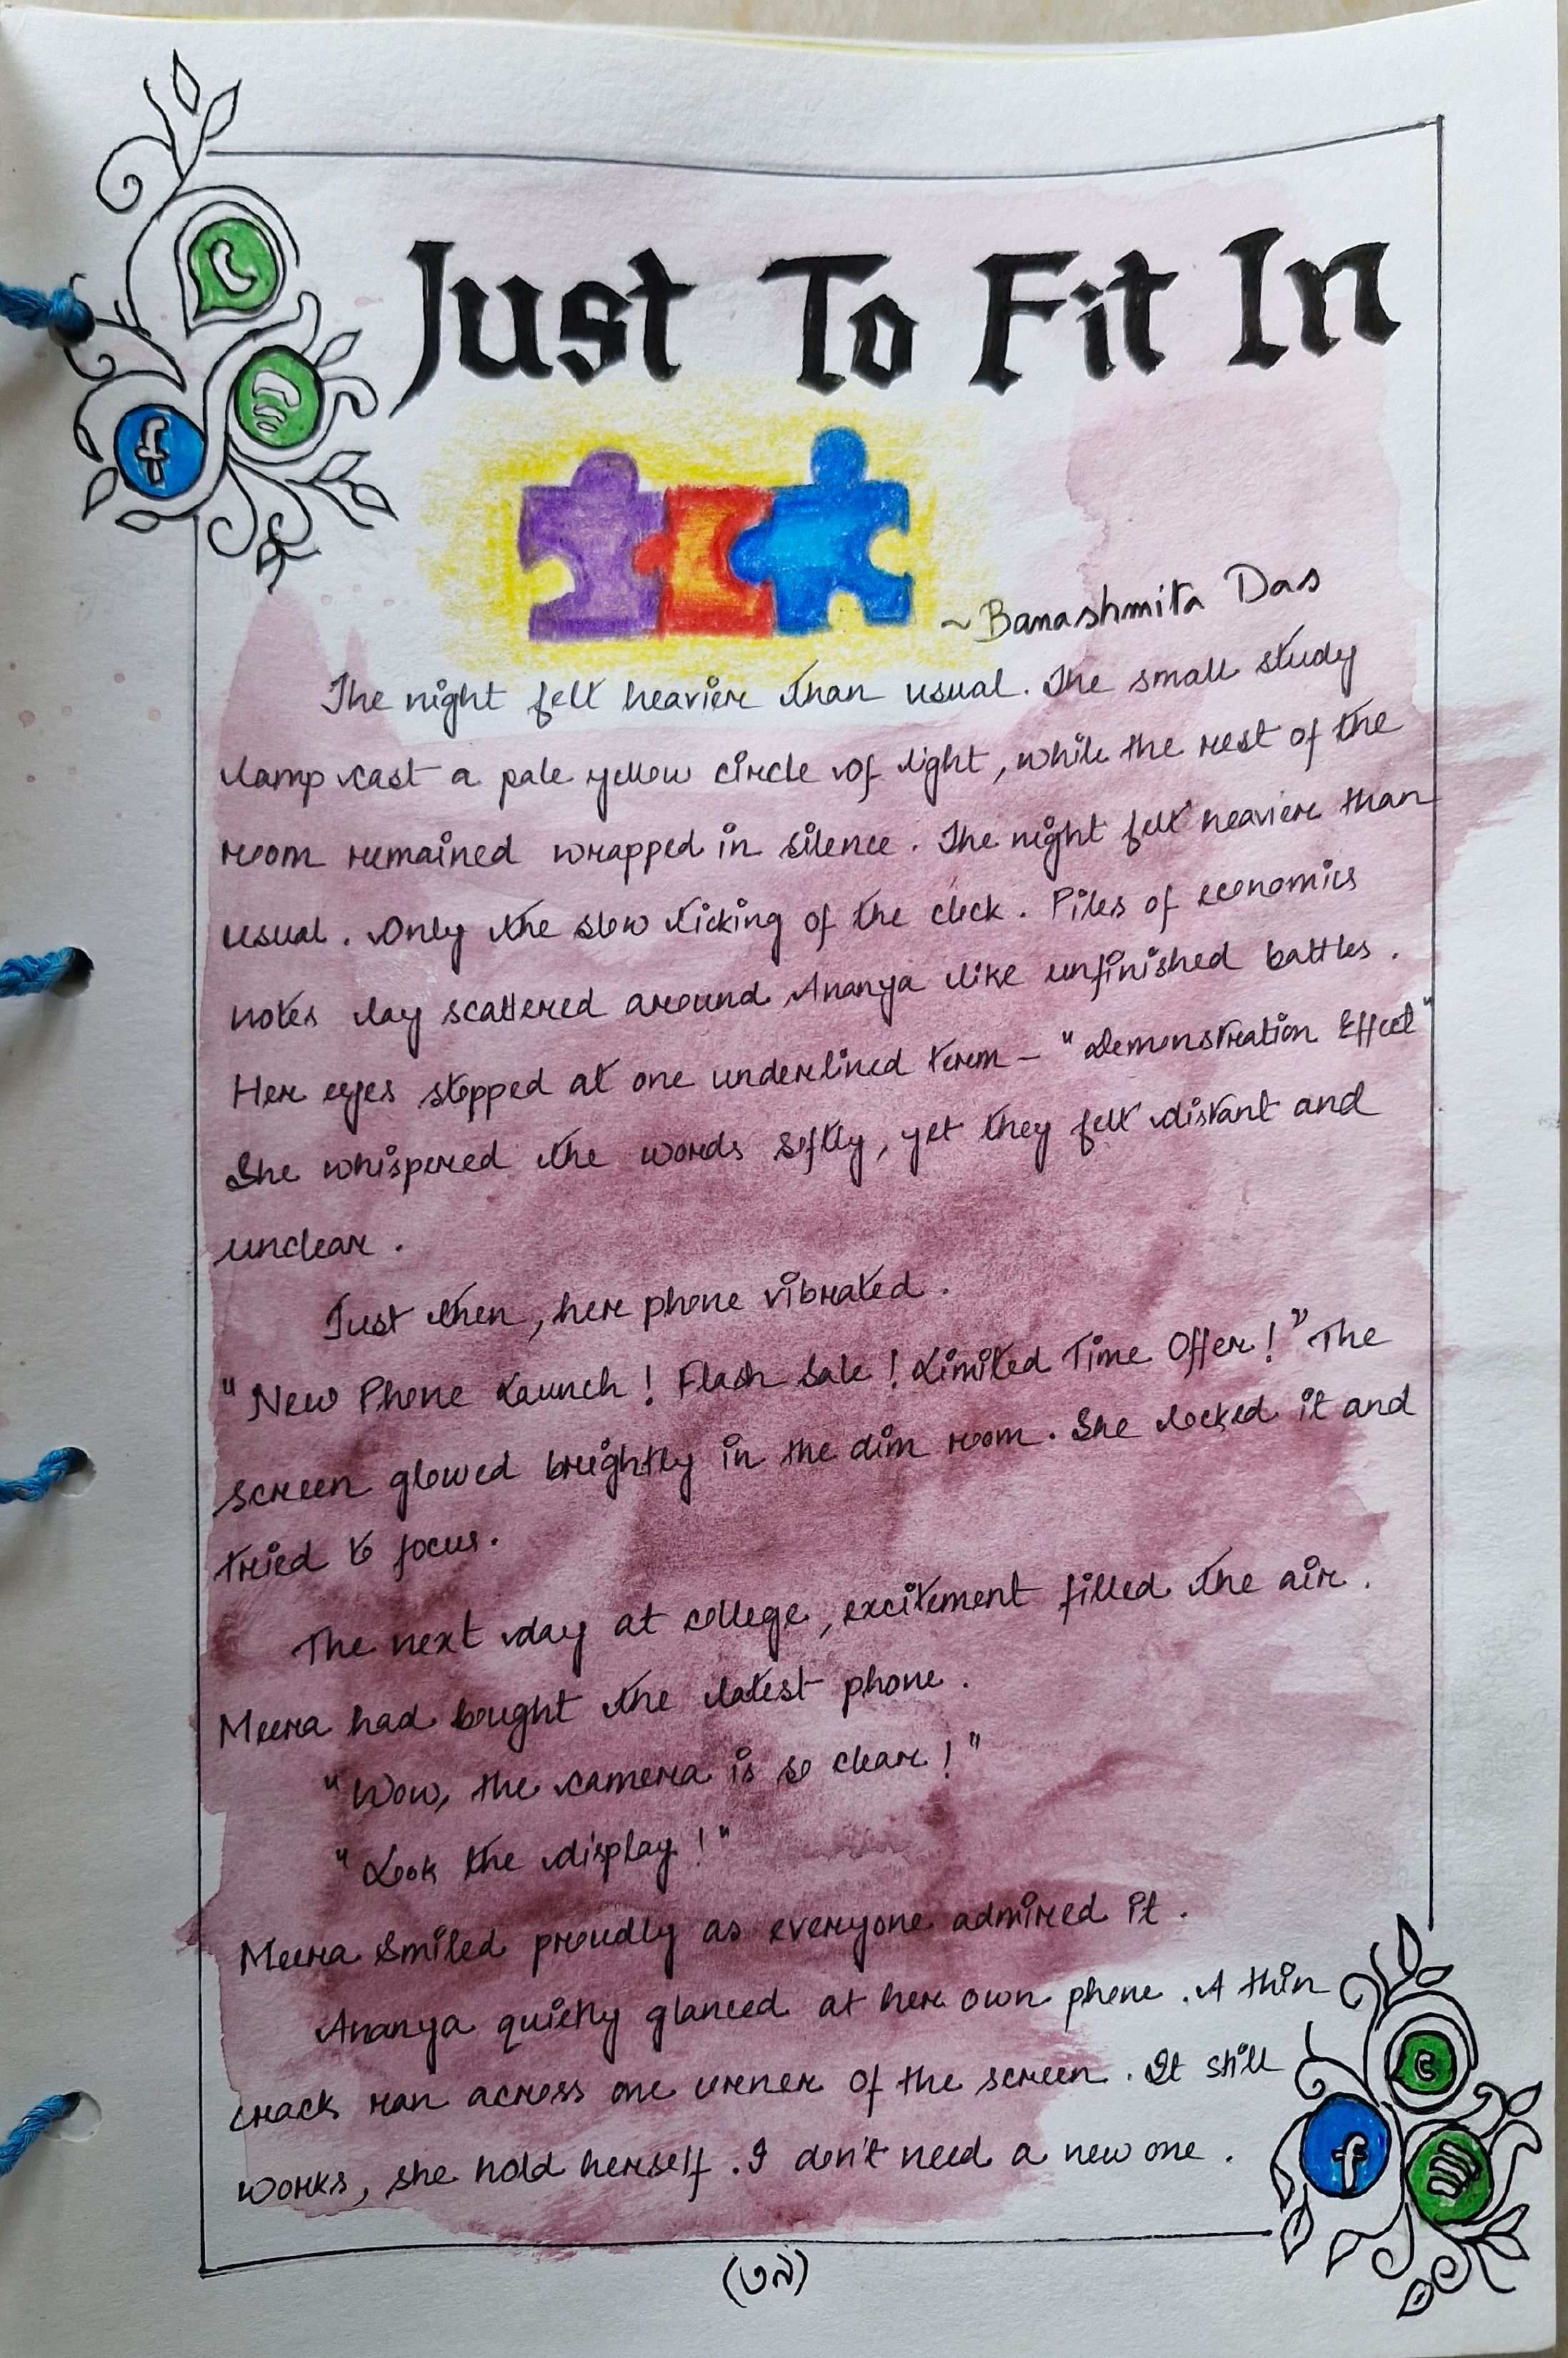 Just To Fit In
~Banashmita Das
The night felt heavier than usual. The small study
lamp cast a pale yellow circle of light, while the rest of the
room remained wrapped in silence. The night felt heavier than
usual. Only the slow ticking of the clock. Piles of economics
notes lay scattered around Ananya like unfinished battles.
Her eyes stopped at one underlined term – "Demonstration Effect"
She whispered the words softly, yet they felt distant and
unclear.
Just then, her phone vibrated.
"New Phone Launch! Flash Sale! Limited Time Offer!" The
screen glowed brightly in the dim room. She locked it and
tried to focus.
The next day at college, excitement filled the air.
Meera had bought the latest phone.
"Wow, the camera is so clear!"
"Look the display!"
Meera smiled proudly as everyone admired it.
Ananya quietly glanced at her own phone. A thin
crack ran across one corner of the screen. It still
works, she hold herself. I don't need a new one.
(৩৯)